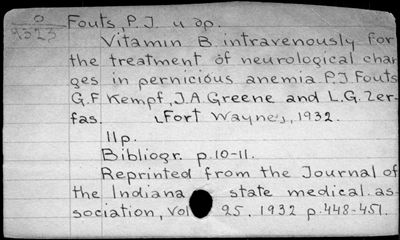 O
9323
Fouts, P. J. u. dp.
Vitamin B intravenously for
the treatment of neurological chan
ges in pernicious anemia P.J Fouts
G.F Kempf, J.A. Greene and L.G. Zer-
fas. Fort Wayne, 1932.
11p.
Bibliogr. p.10-11.
Reprinted from the Journal of
the Indiana state medical. as-
sociation, Vol 25. 1932 p.448-451.